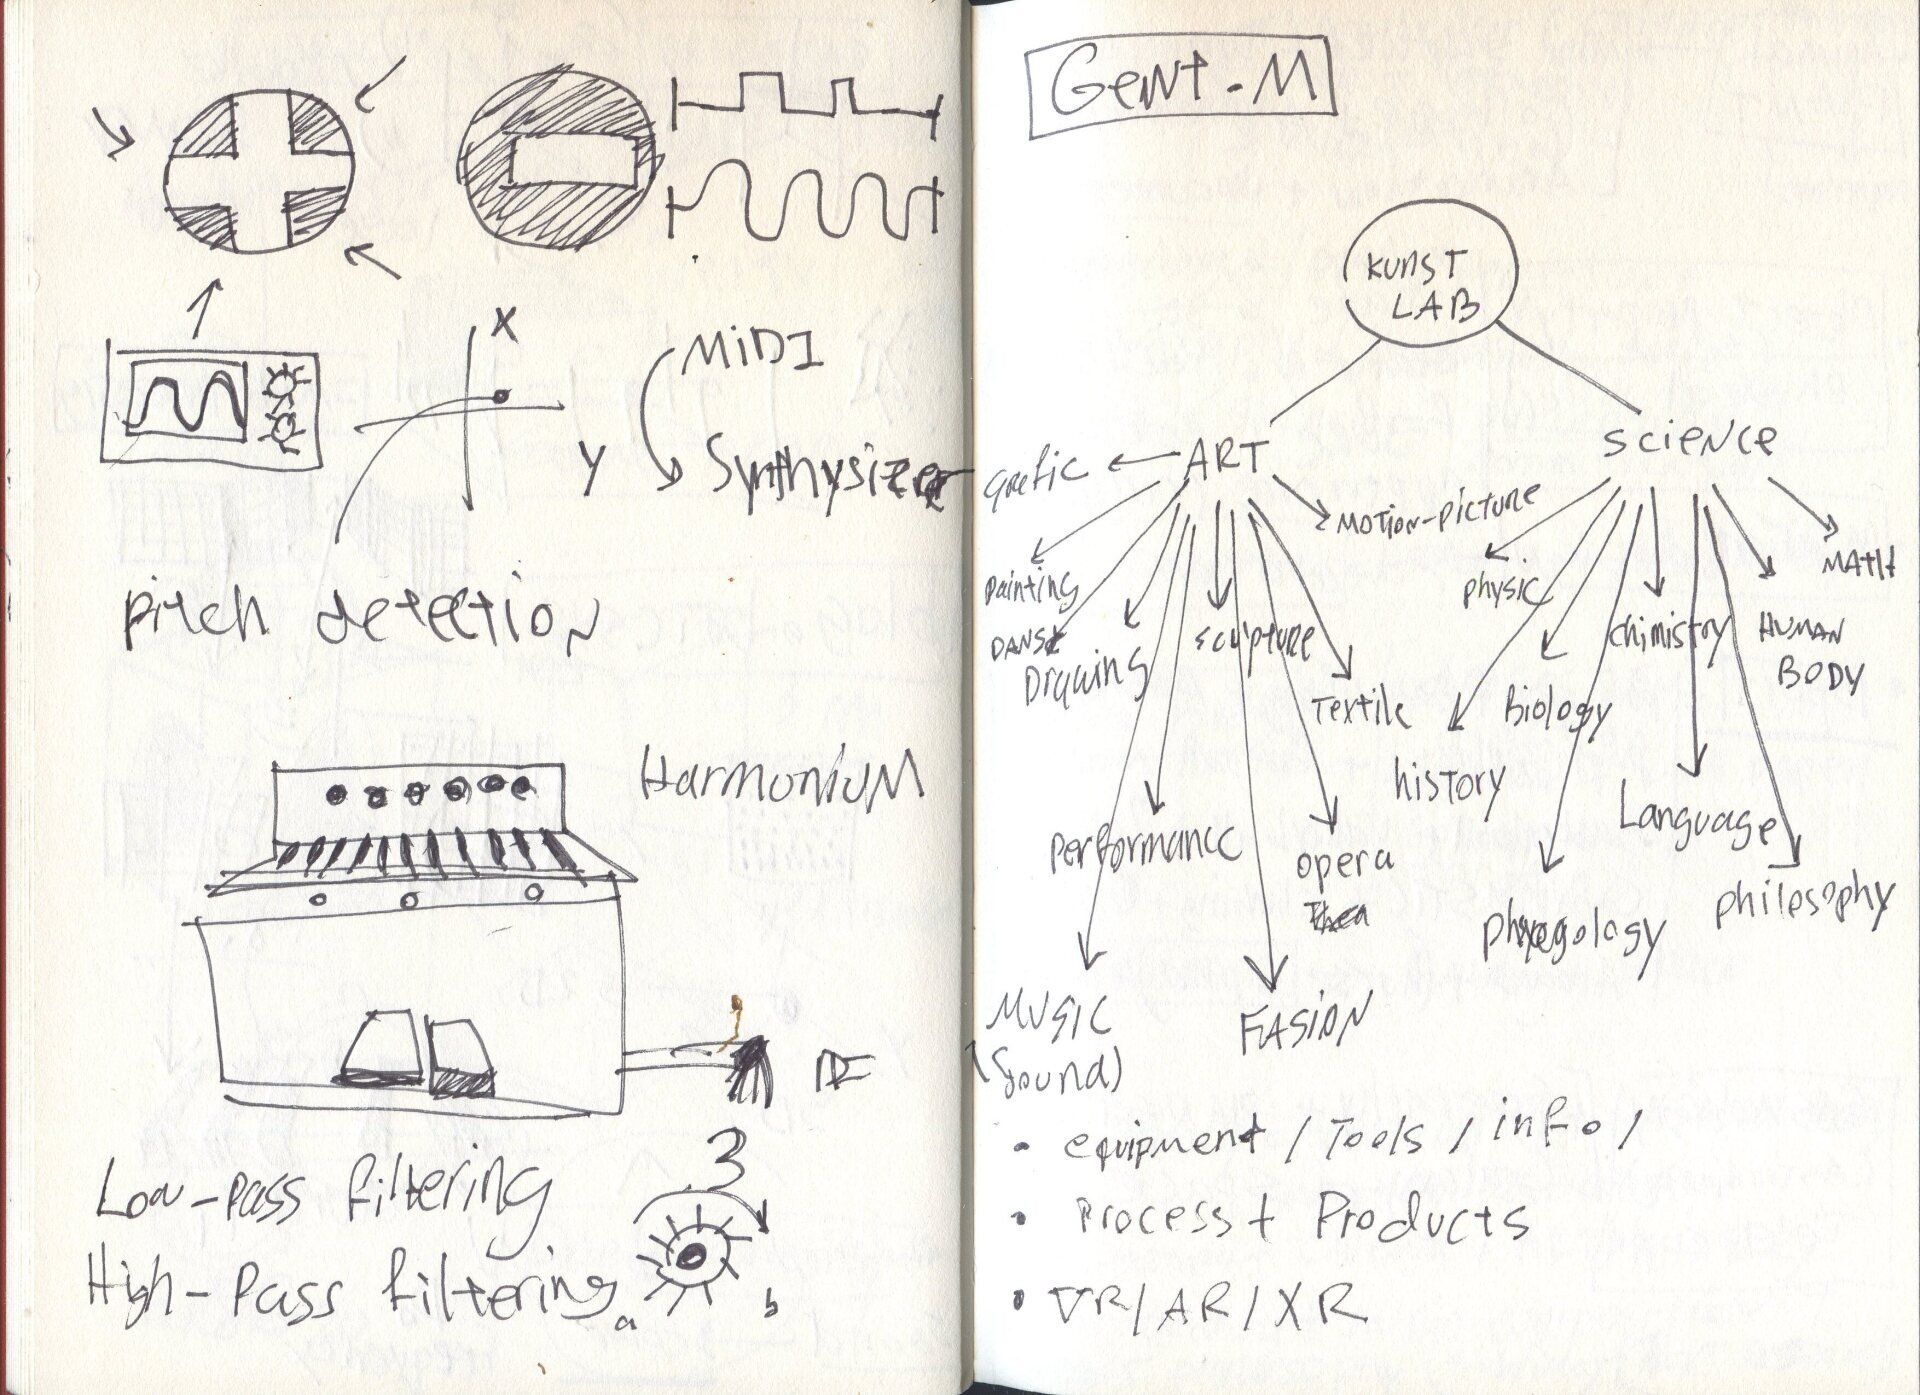 X
MiDI
y
Synthysizer
Pitch detection
Harmonium
Low-pass filtering
3
High-Pass filtering
a
b
Gent-M
KUNST
LAB
ART
SCIENCE
grafic
MOTION-PICTURE
MATH
painting
physic
DANS
sculpture
chimistry
HUMAN
BODY
Drawing
Textile
Biology
history
Language
performance
opera
philosophy
MUSIC
(Sound)
FASION
• equipment / Tools / info /
• Process + Products
• VR/AR/XR